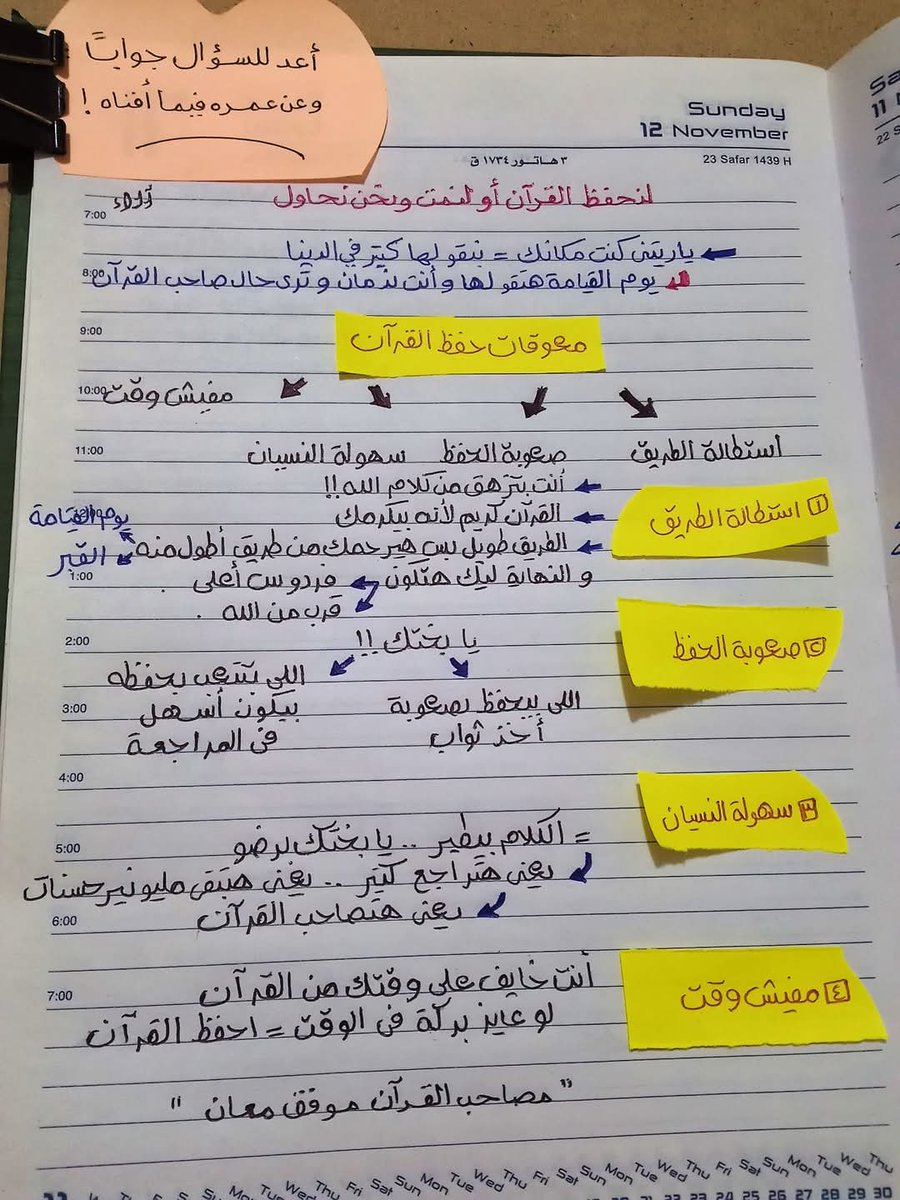 أعد للسؤال جواباً
وعن عمره فيما أفناه !
Sunday
12 November
٣ هاتور ١٧٣٤ ق
23 Safar 1439 H
لنحفظ القرآن أو لنمت ونحن نحاول
7:00
ياريتني كنت مكانك = بنقولها كتير في الدنيا
8:00
يوم القيامة هتقولها وأنت ندمان وترى حال صاحب القرآن
9:00
معوقات حفظ القرآن
10:00
مفيش وقت
11:00
أستطالة الطريق صعوبة الحفظ سهولة النسيان
1 استطالة الطريق
أنت بتزهق من كلام الله !!
القرآن كريم لأنه بيكرمك
يوم القيامة
الطريق طويل بس هيرحمك من طريق أطول منه
القبر
1:00
و النهاية ليك هتكون فردوس أعلى .
قرب من الله .
2:00
٢ صعوبة الحفظ
يا بختك !!
اللي بيحفظ بصعوبة
أخذ ثواب
اللي بتتعب بحفظه
بيكون أسهل
في المراجعة
3:00
4:00
٣ سهولة النسيان
5:00
= الكلام بيطير .. يا بختك برضو
يعني هتراجع كتير .. يعني هتبقى مليونير حسنات
6:00
يعني هتصاحب القرآن
٤ مفيش وقت
7:00
أنت خايف على وقتك من القرآن
لو عايز بركة في الوقت = احفظ القرآن
" مصاحب القرآن موفق معان "
Mon Tue Wed Thu Fri Sat Sun Mon Tue Wed Thu
22 23 24 25 26 27 28 29 30